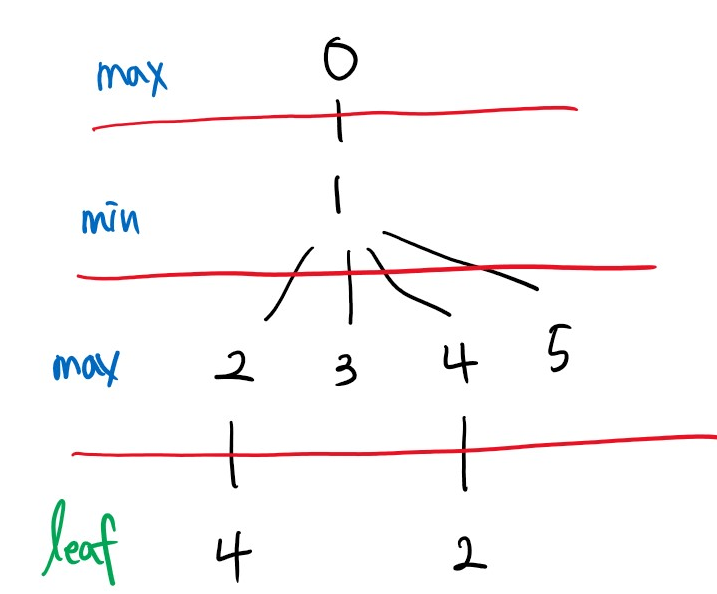 max 0
min 1
max 2 3 4 5
leaf 4 2